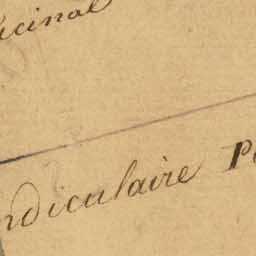 icinal
ndiculaire P